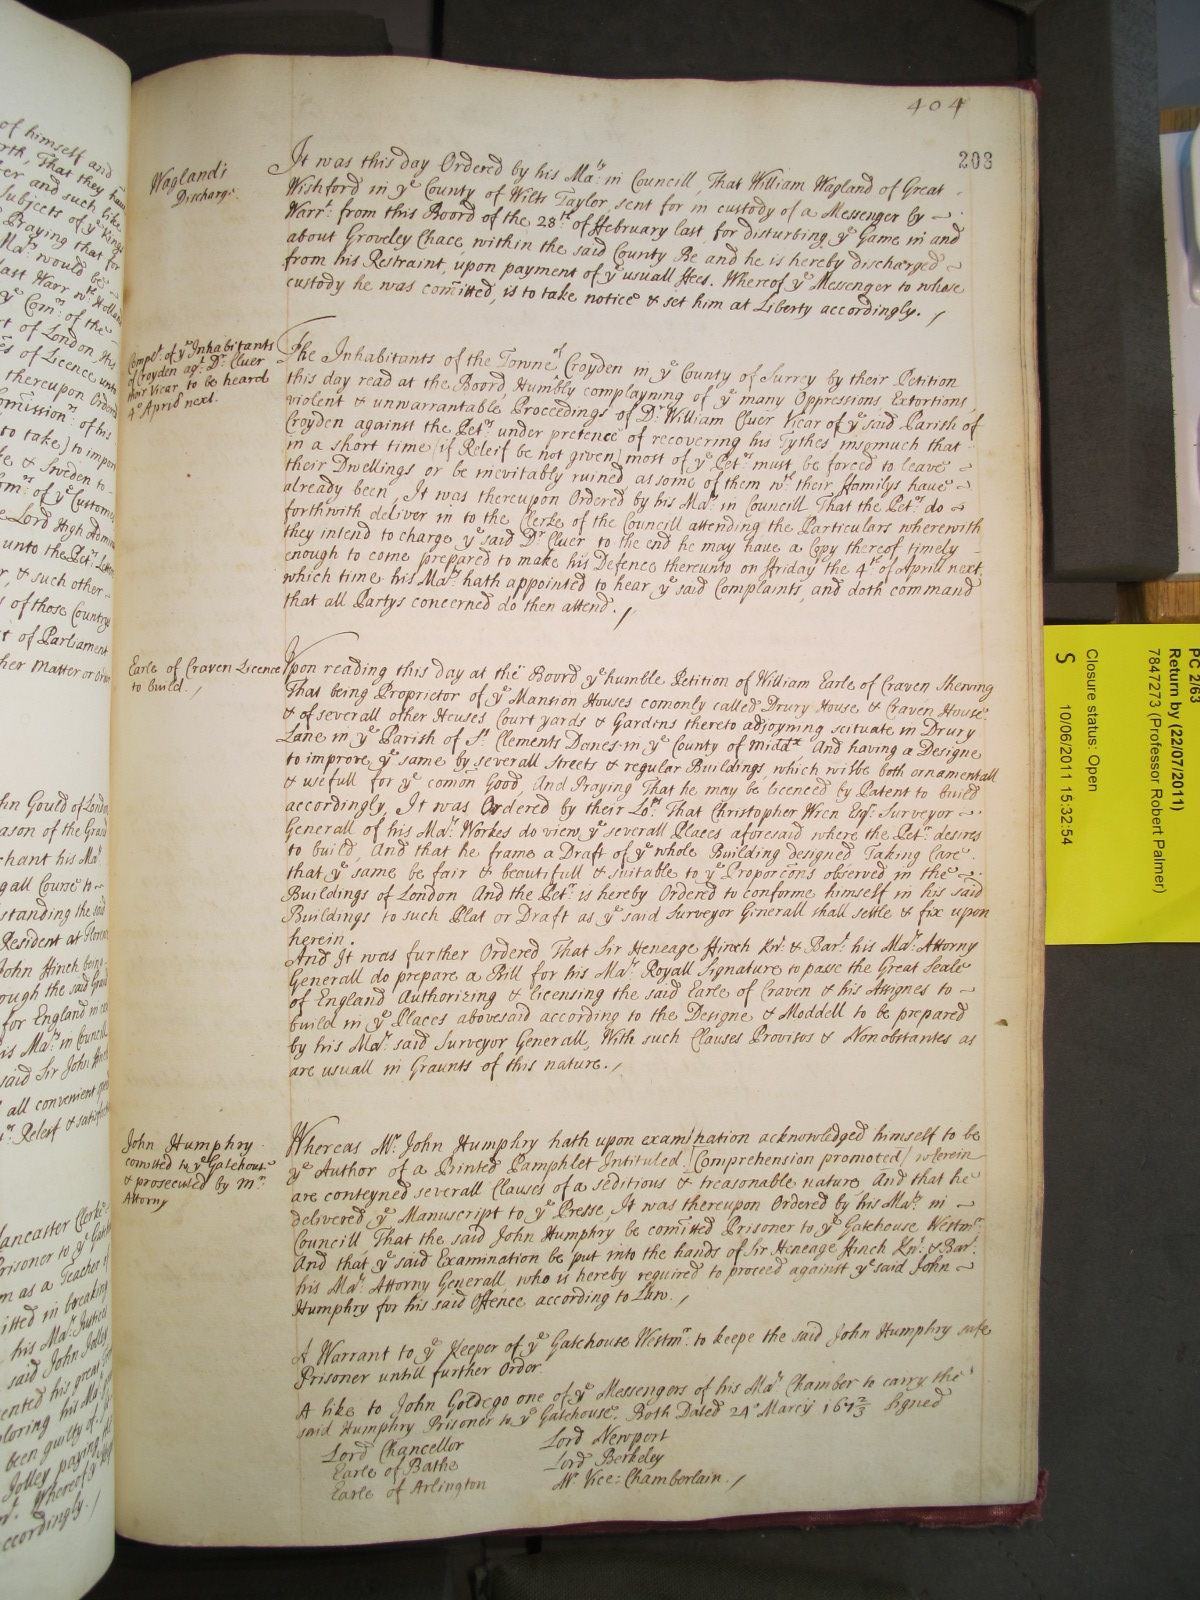 404
203
Waglands
Discharge
It was this day Ordered by his Ma:ty in Councill, That William Wagland of Great
Wishford in ye County of Wilts Taylor, sent for in custody of a Messenger by
Warrt: from this Board of the 28th of ffebruary last, for disturbing ye Game in and
about Groveley Chace within the said County Be and he is hereby discharged
from his Restraint, upon payment of ye usuall ffees. Whereof ye Messenger to whose
custody he was comitted, is to take notice & set him at Liberty accordingly.
Complt. of ye Inhabitants
of Croyden agt. Dr. Cluer
their Vicar to be heard
4o April next.
The Inhabitants of the Towne of Croyden in ye County of Surrey by their Petition
this day read at the Board, Humbly complayning of ye many Oppressions Extortions,
violent & unwarrantable Proceedings of Dr. William Cluer Vicar of ye said Parish of
Croyden against the Petrs under pretence of recovering his Tythes insomuch that
in a short time (if Releif be not given) most of ye Petrs must be forced to leave
their Dwellings or be inevitably ruined as some of them wth their ffamilys have
already been, It was thereupon Ordered by his Maty. in Councill That the Petrs do
forthwith deliver in to the Clerke of the Councill attending the Particulars wherewith
they intend to charge ye said Dr Cluer to the end he may have a Copy thereof timely
enough to come prepared to make his Defence thereunto on ffriday the 4th of Aprill next,
which time his Maty. hath appointed to hear ye said Complaints, and doth command
that all Partys concerned do then attend.
Earle of Craven Licence
to build.
Upon reading this day at the Board ye humble Petition of William Earle of Craven Shewing
That being Proprietor of ye Mansion Houses comonly called Drury House & Craven House
& of severall other Houses Court yards & Gardens thereto adjoyning scituate in Drury
Lane in ye Parish of St. Clements Danes in ye County of Middx And having a Designe
to improve ye same by severall Streets & regular Buildings, which wilbe both ornamentall
& usefull for ye comon Good, And Praying That he may be licenced by Patent to build
accordingly, It was Ordered by their Lops. That Christopher Wren Esqr. Surveyor
Generall of his Mats. Workes do view ye severall Places aforesaid where the Petr. desires
to build, And that he frame a Draft of ye whole Building designed Taking Care
that ye same be fair & beautifull & suitable to ye Proporcons observed in the
Buildings of London And the Petr. is hereby Ordered to conforme himself in his said
Buildings to such Plat or Draft as ye said Surveyor Generall shall settle & fix upon
herein.
And It was further Ordered That Sir Heneage ffinch Knt. & Bart. his Mats. Attorny
Generall do prepare a Bill for his Mats. Royall Signature to passe the Great Seale
of England Authorizing & licensing the said Earle of Craven & his Assignes to
build in ye Places abovesaid according to the Designe & Moddell to be prepared
by his Mats. said Surveyor Generall, With such Clauses Provisos & Nonobstantes as
are usuall in Graunts of this nature.
John Humphry
comitted to ye Gatehouse
& prosecuted by Mr.
Attorny
Whereas Mr. John Humphry hath upon examination acknowledged himself to be
ye Author of a Printed Pamphlet Intituled [Comprehension promoted] wherein
are conteyned severall Clauses of a seditious & treasonable nature And that he
delivered ye Manuscript to ye Presse, It was thereupon Ordered by his Maty. in
Councill That the said John Humphry be comitted Prisoner to ye Gatehouse Westmr.
And that ye said Examination be put into the hands of Sir Heneage ffinch Knt. & Bart.
his Mats. Attorny Generall, who is hereby required to proceed against ye said John
Humphry for his said Offence according to Law.
A Warrant to ye Keeper of ye Gatehouse Westmr. to keepe the said John Humphry safe
Prisoner untill further Order
A like to John Goldego one of ye Messengers of his Mats. Chamber to carry the
said Humphry Prisoner to ye Gatehouse. Both Dated 24o March 167 2/3 Signed
Lord Chancellor
Earle of Bathe
Earle of Arlington
Lord Newport
Lord Berkeley
Mr Vice=Chamberlain.
PC 2/63
Return by (22/07/2011)
7847273 (Professor Robert Palmer)
Closure status: Open
S 10/06/2011 15:32:54